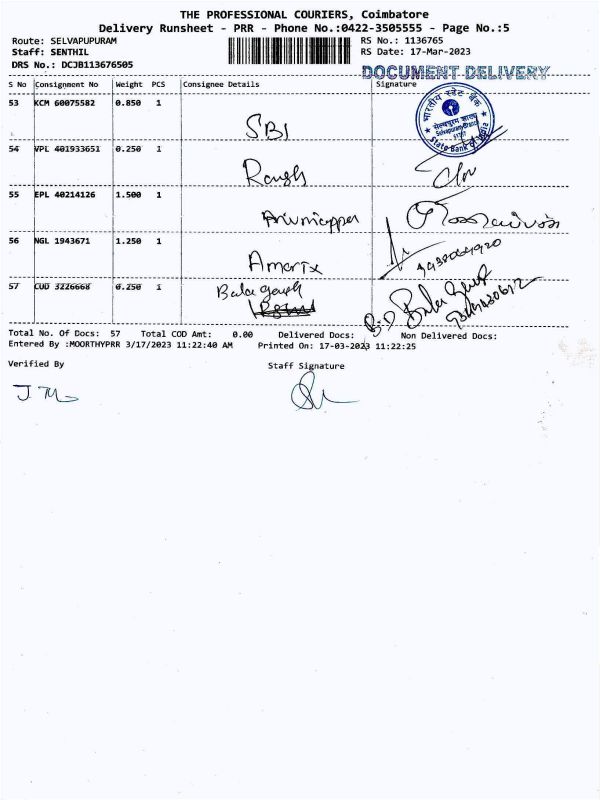 THE PROFESSIONAL COURIERS, Coimbatore
Delivery Runsheet - PRR - Phone No.:0422-3505555 - Page No.:5
Route: SELVAPUPURAM RS No.: 1136765
Staff: SENTHIL RS Date: 17-Mar-2023
DRS No.: DCJB113676505
DOCUMENT DELIVERY
S No Consignment No Weight PCS Consignee Details Signature
53 KCM 60075582 0.850 1 SBI
भारतीय स्टेट बैंक
State Bank of India
54 VPL 401933651 0.250 1
55 EPL 40214126 1.500 1
56 NGL 1943671 1.250 1 Amarix
57 CUD 3226668 0.250 1 Bala
Total No. Of Docs: 57 Total COD Amt: 0.00 Delivered Docs: Non Delivered Docs:
Entered By :MOORTHYPRR 3/17/2023 11:22:40 AM Printed On: 17-03-2023 11:22:25
Verified By Staff Signature